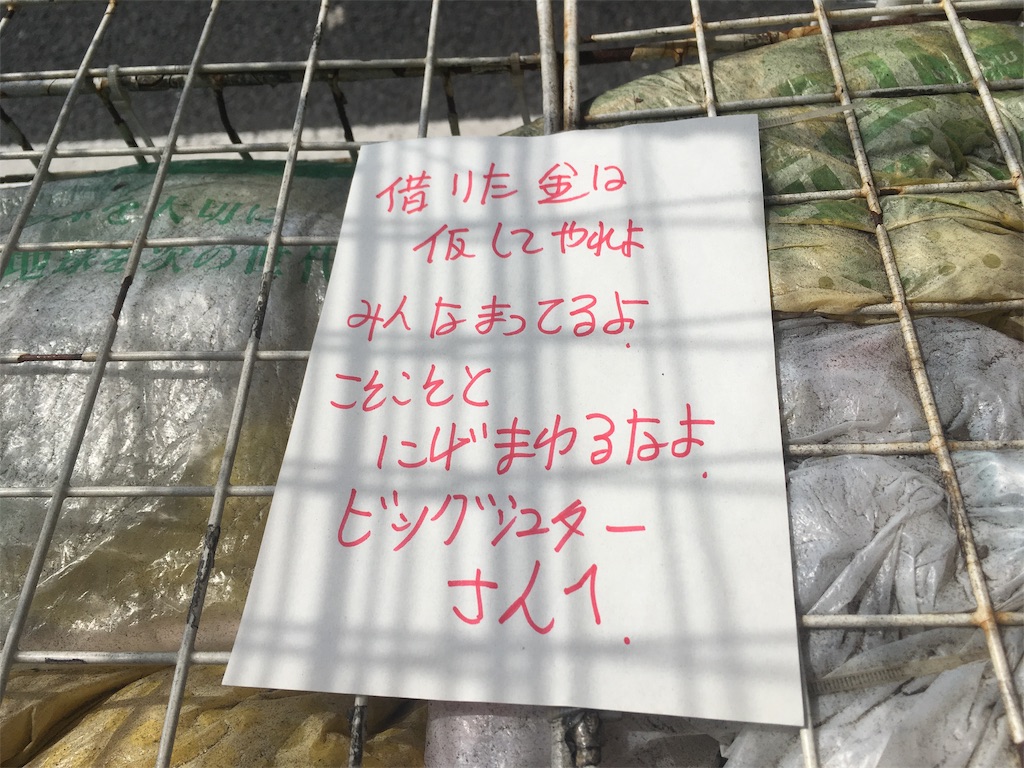 借りた金は
仮してやれよ
みんなまってるよ.
こそこそと
にげまわるなよ.
ビッグジュター
さんへ.
大切に
地球を次の世代